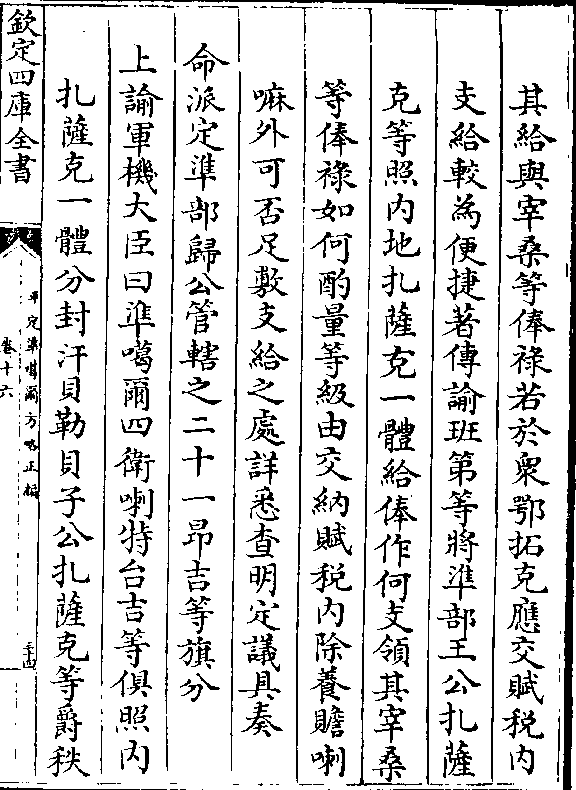 其給與宰桑等俸祿若於衆鄂拓克應交賦税内
支給較為便捷著傳諭班第等將準部王公扎薩
克等照内地扎薩克一體給俸作何支領其宰桑
等俸祿如何酌量等級由交納賦税内除養贍喇
嘛外可否足敷支給之處詳悉查明定議具奏
命派定準部歸公管轄之二十一昻吉等旗分
上諭軍機大臣曰準噶爾四衛喇特台吉等俱照内
扎薩克一體分封汗貝勒貝子公扎薩克等爵秩
欽定四庫全書
平定準噶爾方略正編
卷十六
三十四